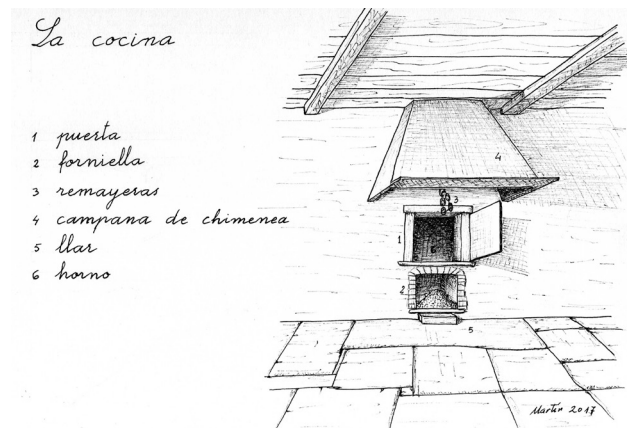 La cocina
1 puerta
2 forniella
3 remayeras
4 campana de chimenea
5 llar
6 horno
4
3
1
6
2
5
Martín 2017